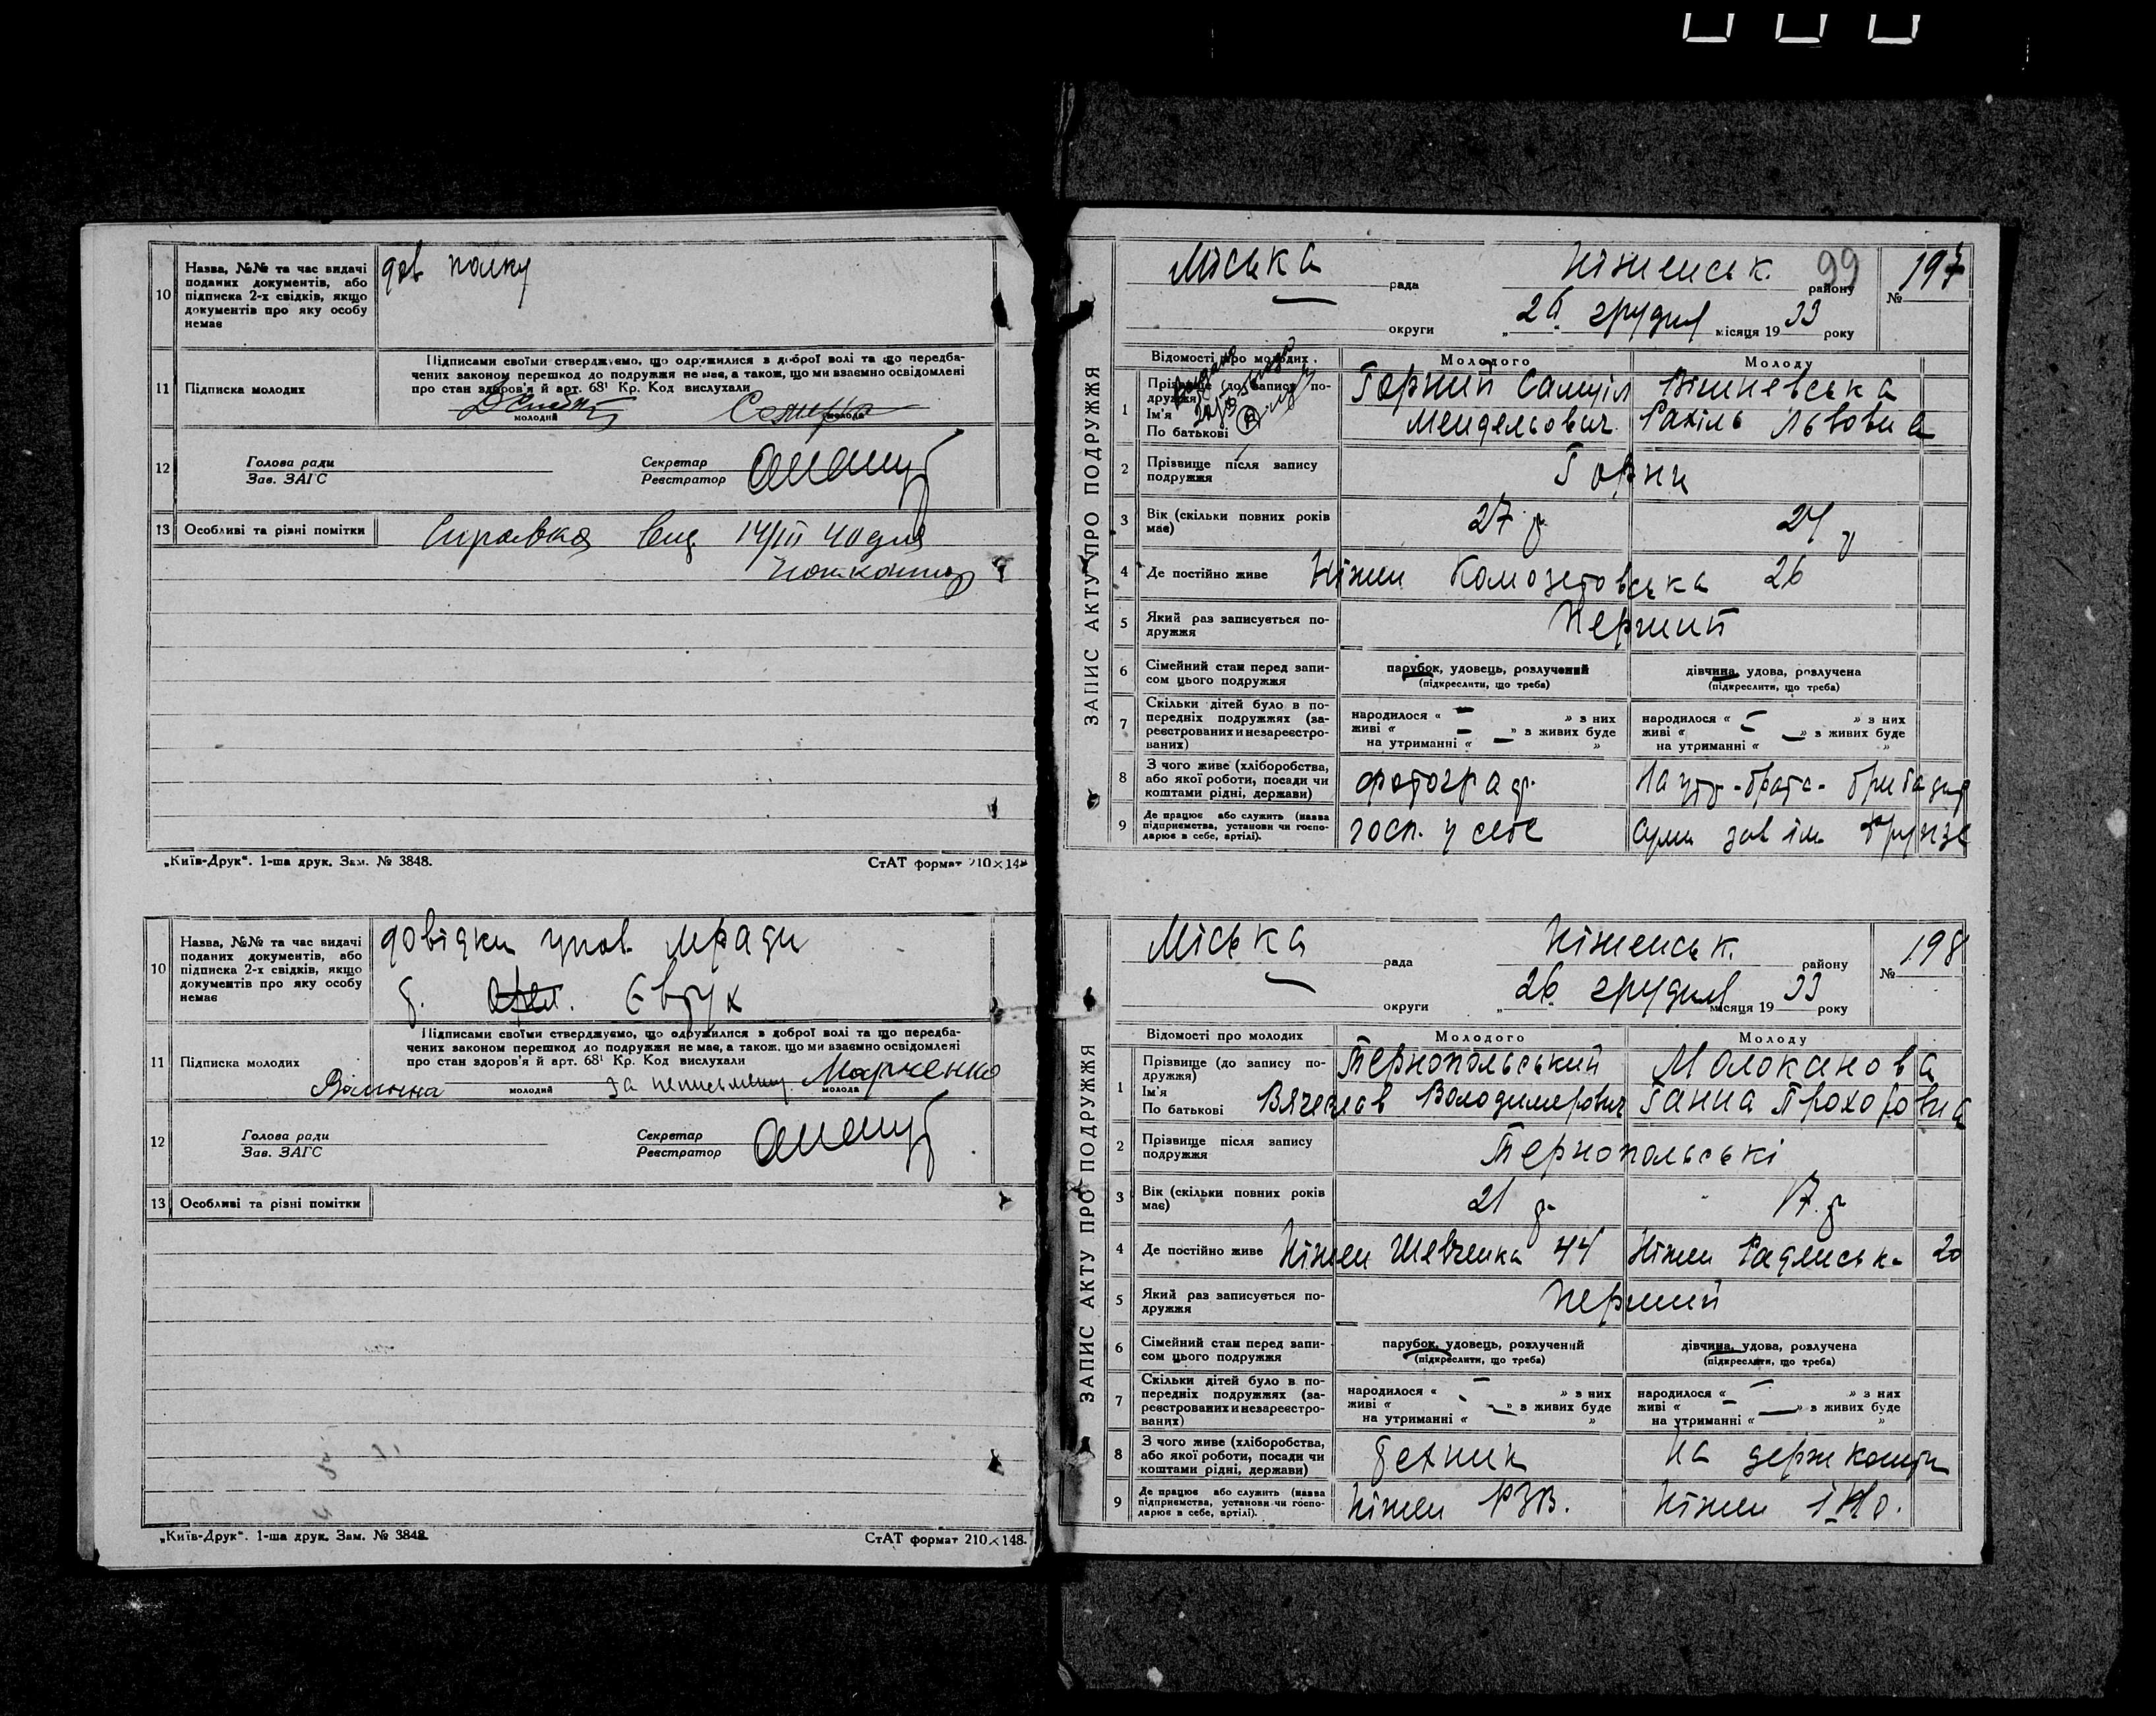 10
Назва, №№ та час видачі
поданих документів, або
підписка 2-х свідків, якщо
документів про яку особу
немає
дов полку
11
Підписка молодих
Підписами своїми стверджуємо, що одружилися з доброї волі та що передба-
чених законом перешкод до подружжя не має, а також, що ми взаємно освідомлені
про стан здоров'я й арт. 68¹ Кр. Код вислухали
молодий
молода
12
Голова ради
Зав. ЗАГС
Секретар
Реєстратор
13
Особливі та різні помітки
Справка выд 14/III 40 для
„Київ-Друк". 1-ша друк. Зам. № 3848.
СтАТ формат 210×148
10
Назва, №№ та час видачі
поданих документів, або
підписка 2-х свідків, якщо
документів про яку особу
немає
довідки упов. мради
11
Підписка молодих
Підписами своїми стверджуємо, що одружилися з доброї волі та що передба-
чених законом перешкод до подружжя не має, а також, що ми взаємно освідомлені
про стан здоров'я й арт. 68¹ Кр. Код вислухали
молодий
за неписьмену Марченко
молода
12
Голова ради
Зав. ЗАГС
Секретар
Реєстратор
13
Особливі та різні помітки
„Київ-Друк". 1-ша друк. Зам. № 3848.
СтАТ формат 210×148.
ЗАПИС АКТУ ПРО ПОДРУЖЖЯ
Міська рада
Ніженськ. району
99
№ 197
округи
„26 грудня місяця 1933 року
Відомості про молодих
Молодого
Молоду
1
Прізвище (до запису по-
дружжя)
Ім'я
По батькові
Горний Самуіл
Мендельович
Вишневська
Рахіль Львовна
2
Прізвище після запису
подружжя
Горни
3
Вік (скільки повних років
має)
27 р
24 р
4
Де постійно живе
Ніжен Комозетовська 26
5
Який раз записується по-
дружжя
Перший
6
Сімейний стан перед запи-
сом цього подружжя
парубок, удовець, розлучений
(підкреслити, що треба)
дівчина, удова, розлучена
(підкреслити, що треба)
7
Скільки дітей було в по-
передніх подружжях (за-
реєстрованих и незареєстро-
ваних)
народилося « — » з них
живі « — » з живих буде
на утриманні « — »
народилося « — » з них
живі « — » з живих буде
на утриманні « »
8
З чого живе (хліборобства,
або якої роботи, посади чи
коштами рідні, держави)
фотограф.
9
Де працює або служить (назва
підприємства, установи чи госпо-
дарює в себе, артілі).
госп. у себе
зав ім Фрунзе
ЗАПИС АКТУ ПРО ПОДРУЖЖЯ
Міська рада
Ніженськ. району
№ 198
округи
„26 грудня місяця 1933 року
Відомості про молодих
Молодого
Молоду
1
Прізвище (до запису по-
дружжя)
Ім'я
По батькові
Тернопольський
Вячеслав Володимерович
Молоканова
Ганна Прохоровна
2
Прізвище після запису
подружжя
Тернопольські
3
Вік (скільки повних років
має)
21 р
17 р
4
Де постійно живе
Ніжен Шевченка 44
Ніжен Радянськ. 20
5
Який раз записується по-
дружжя
Перший
6
Сімейний стан перед запи-
сом цього подружжя
парубок, удовець, розлучений
(підкреслити, що треба)
дівчина, удова, розлучена
(підкреслити, що треба)
7
Скільки дітей було в по-
передніх подружжях (за-
реєстрованих и незареєстро-
ваних)
народилося « — » з них
живі « » з живих буде
на утриманні « — »
народилося « — » з них
живі « — » з живих буде
на утриманні « — »
8
З чого живе (хліборобства,
або якої роботи, посади чи
коштами рідні, держави)
техник
на держ кошти
9
Де працює або служить (назва
підприємства, установи чи госпо-
дарює в себе, артілі).
Ніжен
Ніжен ІНО.